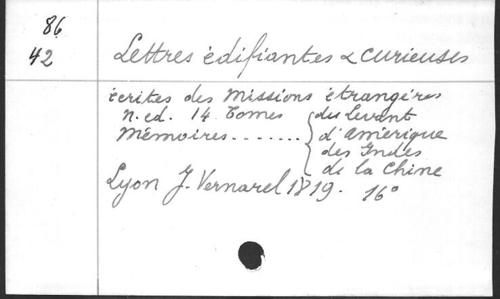 86
42
Lettres édifiantes & curieuses
écrites des Missions étrangères
n. ed. 14 Tomes du Levant
Mémoires....... d'amérique
des Indes
de la Chine
Lyon J. Vernarel 1819. 16°